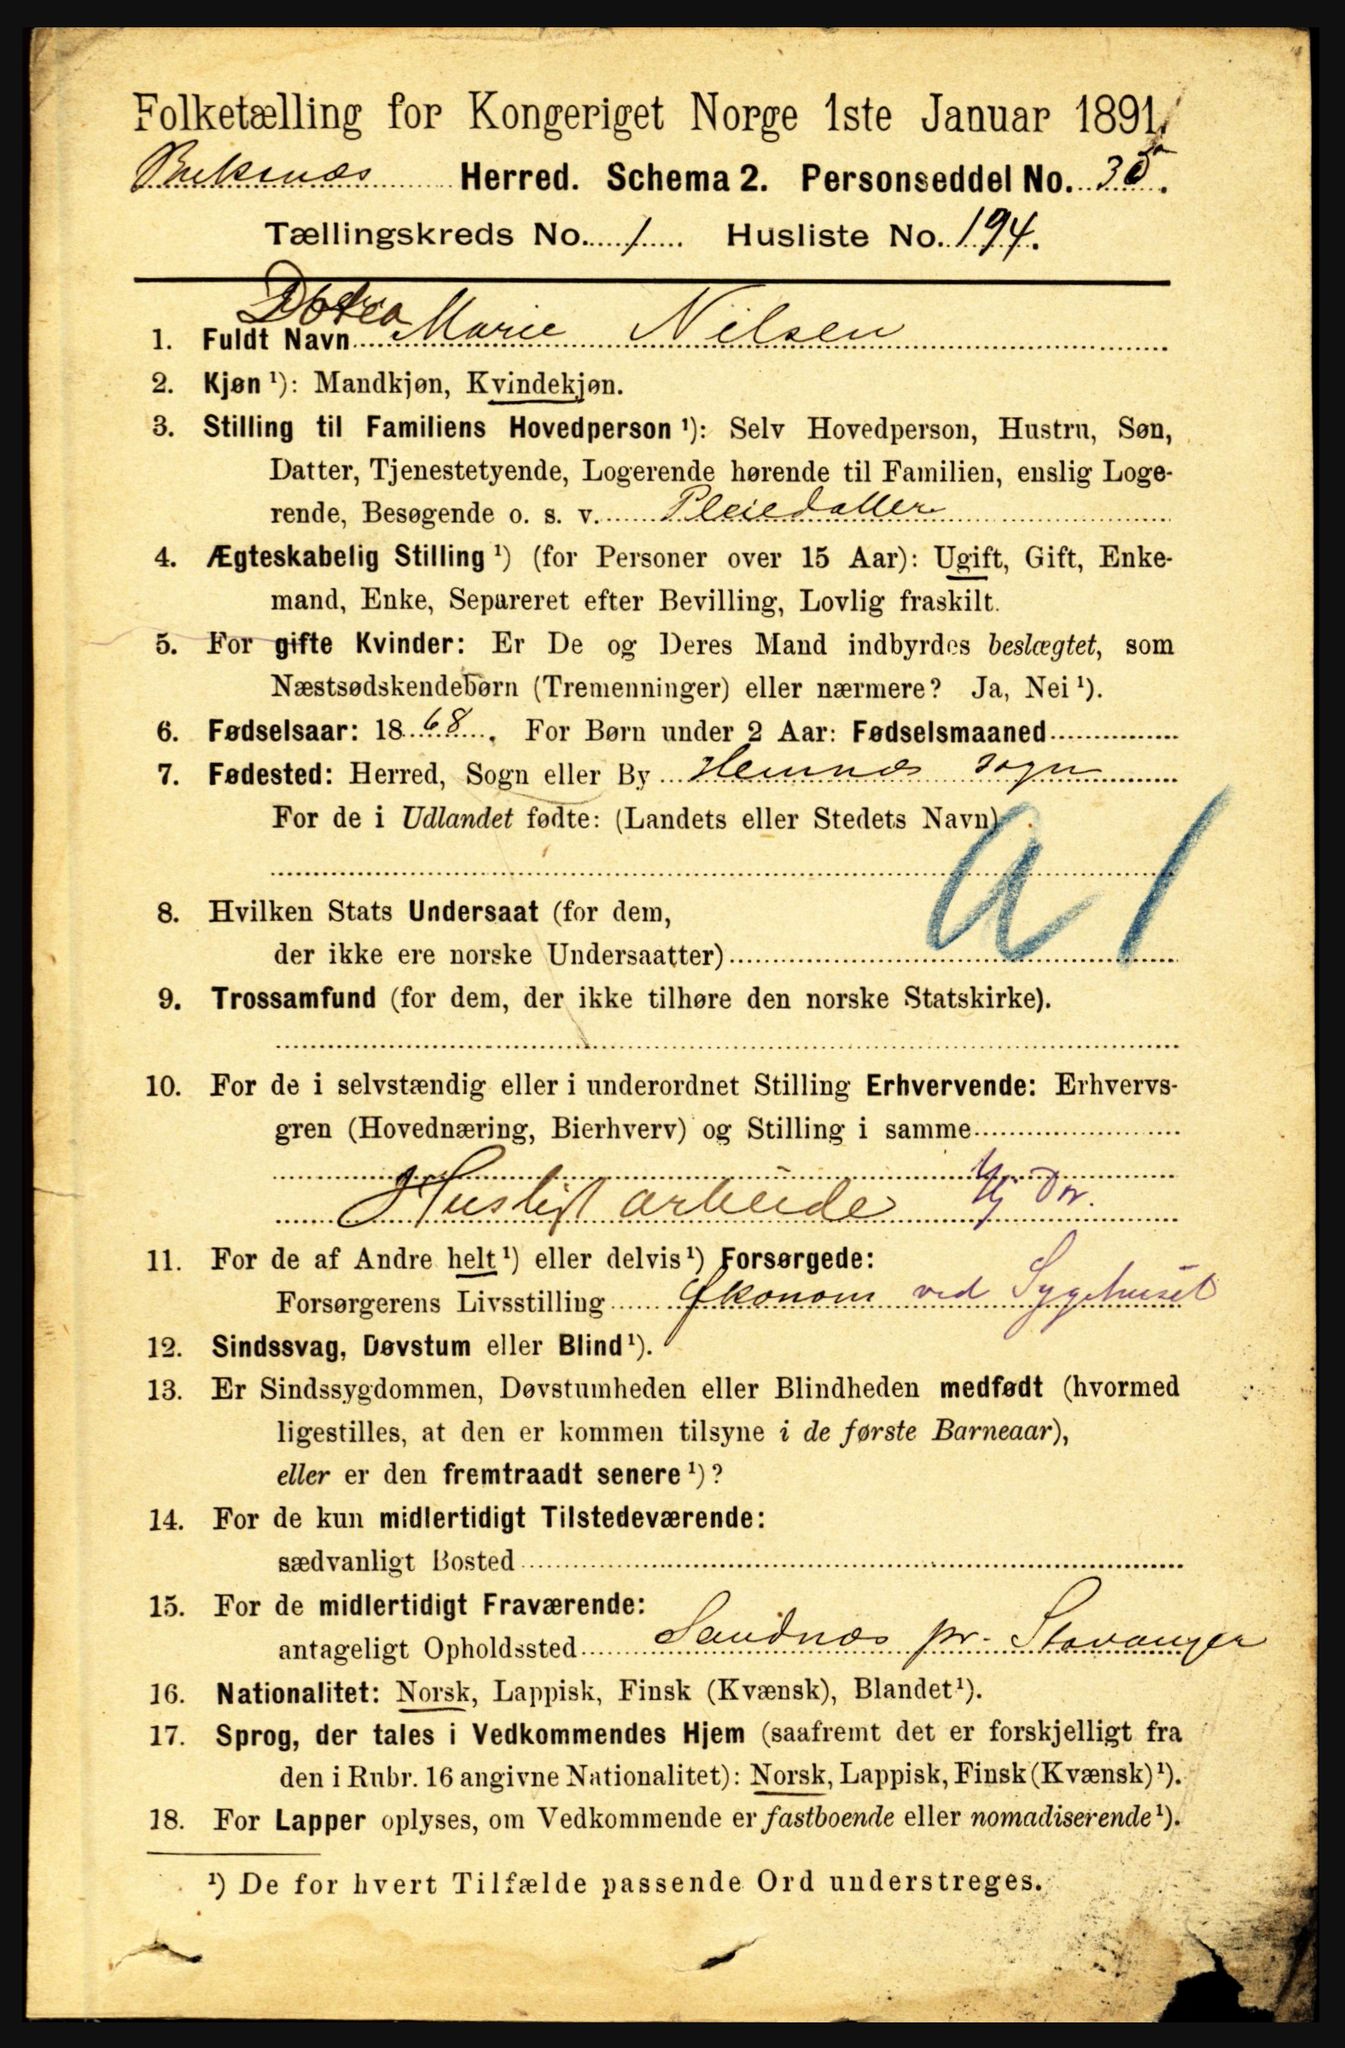 Folketælling for Kongeriget Norge 1ste Januar 1891.
Buksnæs Herred. Schema 2. Personseddel No. 35.
Tællingskreds No. 1 Husliste No. 194.
Dotea
1. Fuldt Navn Marie Nilsen
2. Kjøn ¹): Mandkjøn, Kvindekjøn.
3. Stilling til Familiens Hovedperson ¹): Selv Hovedperson, Hustru, Søn,
Datter, Tjenestetyende, Logerende hørende til Familien, enslig Loge-
rende, Besøgende o. s. v. Pleiedatter
4. Ægteskabelig Stilling ¹) (for Personer over 15 Aar): Ugift, Gift, Enke-
mand, Enke, Separeret efter Bevilling, Lovlig fraskilt.
5. For gifte Kvinder: Er De og Deres Mand indbyrdes beslægtet, som
Næstsødskendebørn (Tremenninger) eller nærmere? Ja, Nei ¹).
6. Fødselsaar: 1868. For Børn under 2 Aar: Fødselsmaaned
7. Fødested: Herred, Sogn eller By Hemnæs sogn
For de i Udlandet fødte: (Landets eller Stedets Navn)
a 1
8. Hvilken Stats Undersaat (for dem,
der ikke ere norske Undersaatter)
9. Trossamfund (for dem, der ikke tilhøre den norske Statskirke).
10. For de i selvstændig eller i underordnet Stilling Erhvervende: Erhvervs-
gren (Hovednæring, Bierhverv) og Stilling i samme
Husligt arbeide
11. For de af Andre helt ¹) eller delvis ¹) Forsørgede:
Forsørgerens Livsstilling Økonom ved Sygehuset
12. Sindssvag, Døvstum eller Blind ¹).
13. Er Sindssygdommen, Døvstumheden eller Blindheden medfødt (hvormed
ligestilles, at den er kommen tilsyne i de første Barneaar),
eller er den fremtraadt senere ¹)?
14. For de kun midlertidigt Tilstedeværende:
sædvanligt Bosted
15. For de midlertidigt Fraværende:
antageligt Opholdssted Sandnæs pr. Stavanger
16. Nationalitet: Norsk, Lappisk, Finsk (Kvænsk), Blandet ¹).
17. Sprog, der tales i Vedkommendes Hjem (saafremt det er forskjelligt fra
den i Rubr. 16 angivne Nationalitet): Norsk, Lappisk, Finsk (Kvænsk) ¹).
18. For Lapper oplyses, om Vedkommende er fastboende eller nomadiserende ¹).
¹) De for hvert Tilfælde passende Ord understreges.